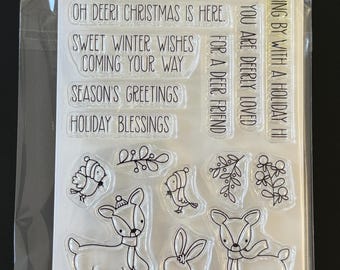 OH DEER! CHRISTMAS IS HERE.
SWEET WINTER WISHES
COMING YOUR WAY
SEASON'S GREETINGS
HOLIDAY BLESSINGS
FOR A DEER FRIEND
YOU ARE DEERLY LOVED
ING BY WITH A HOLIDAY HI